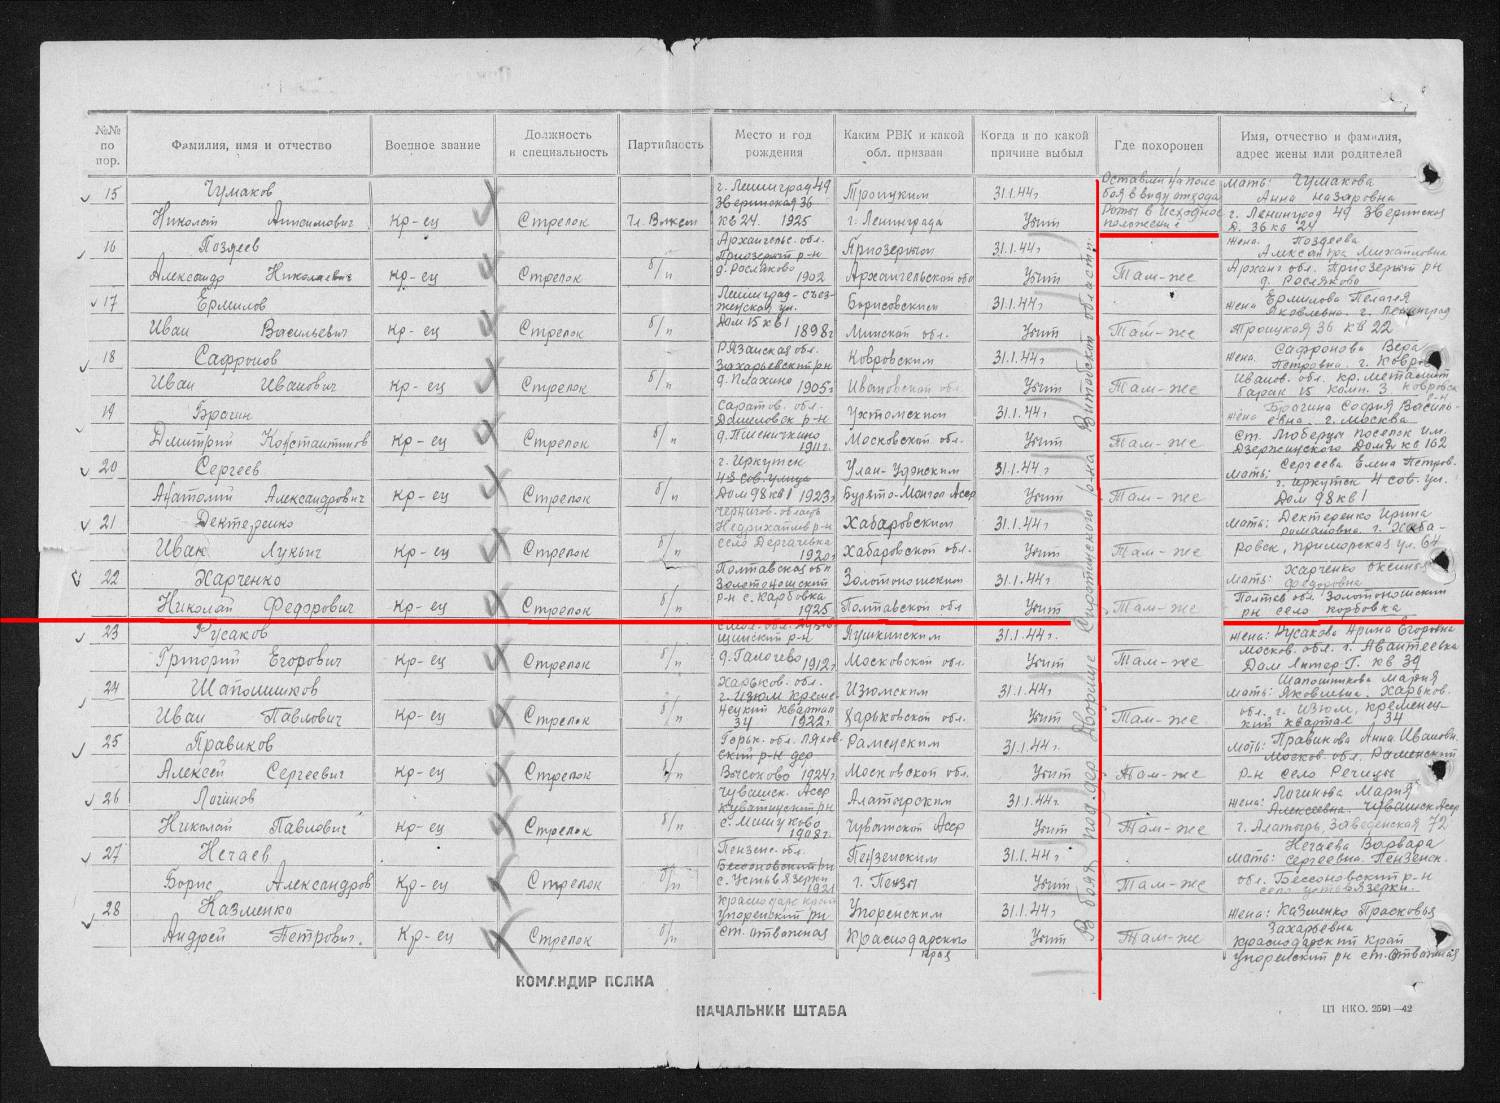 №№ по пор.
Фамилия, имя и отчество
Военное звание
Должность и специальность
Партийность
Место и год рождения
Каким РВК и какой обл. призван
Когда и по какой причине выбыл
Где похоронен
Имя, отчество и фамилия, адрес жены или родителей
15 Чумаков г. Ленинград 49 Троицким 31.1.44г Оставлен на поле Мать: Чумакова
Зверинская 36 боя в виду отхода Анна Назаровна
Николай Кр-ец Стрелок Чл. Влксм кв 24. 1925 г. Ленинграда Убит Роты в Исходное г. Ленинград 49 Зверинская
положение Д. 36 кв 24
16 Поздеев Архангельс. обл. Приозерным 31.1.44г Жена: Поздеева
Приозерный р-н Александра Михайловна
Александр Николаевич Кр-ец Стрелок б/п 1902 Архангельской обл Убит Там-же Арханг обл. Приозерный рн
17 Ермилов Ленинград Борисовским 31.1.44г Жена Ермилова Пелагея
Яковлевна. г. Ленинград
Иван Васильевич Кр-ец Стрелок б/п Дом 15 кв 1 1898г Минской обл. Убит Там-же Троицкая 36 кв 22
18 Сафронов Рязанская обл. Ковровским 31.1.44г Жена. Сафронова Вера
Захарьевский рн Петровна. г. Ковров
Иван Иванович Кр-ец Стрелок б/п д. Плахино 1905г Ивановской обл Убит Там-же Иванов. обл.
барак 15 комн. 3
19 Брагин Саратов. обл. Ухтомским 31.1.44г Жена Брагина София Василь-
р-н евна. г. Москва
Дмитрий Константинов Кр-ец Стрелок б/п 1911г. Московской обл. Убит Там-же ст. Люберцы поселок им.
Дзержинского Дом 2 кв 162
20 Сергеев г. Иркутск Улан-Удэнским 31.1.44г Мать: Сергеева Елена Петров.
Сов. улица г. Иркутск 4 сов. ул.
Анатолий Александрович Кр-ец Стрелок б/п Дом 98 кв 1 1923г Бурято-Монгол Асср Убит Там-же Дом 98 кв 1
21 Дектеренко Чернигов. область Хабаровским 31.1.44г Мать: Дектеренко Ирина
р-н Романовна. г. Хаба-
Иван Лукьич Кр-ец Стрелок б/п село Дергачевка Хабаровской обл. Убит Там-же ровск, приморская ул. 64
1920г
22 Харченко Полтавская обл Золотоношским 31.1.44г Мать: Харченко
Золотоношский Федоровна
Николай Федорович Кр-ец Стрелок б/п р-н с. Карбовка Полтавской обл Убит Там-же Полтав обл. Золотоношский
1925 рн село Корбовка
23 Русаков Смол. обл. Пушкинским 31.1.44г. Жена: Русакова Арина Егоровна
р-н Московс. обл. г.
Григорий Егорович Кр-ец Стрелок б/п 1912г Московской обл. Убит Там-же кв 39
24 Шапошников Харьков. обл. Изюмским 31.1.44г Мать: Шапошникова Мария
г. Изюм Креме- Яковлевна. Харьков.
Иван Павлович Кр-ец Стрелок б/п нецкий квартал Харьковской обл. Убит Там-же обл. г. Изюм, кременец-
34 1922г. кий квартал 34
25 Правиков Горьк. обл. Раменским 31.1.44г. Мать: Правикова Анна Ивановн.
ский р-н дер Москов обл. Раменский
Алексей Сергеевич Кр-ец Стрелок б/п Высоково 1924г Московской обл. Убит Там-же р-н село Речицы
26 Логинов Чувашск. Асср Алатырским 31.1.44г. Жена: Логинова Мария
рн Алексеевна. Чувашск Асср
Николай Павлович Кр-ец Стрелок б/п 1908г. Чувашской Асср Убит Там-же г. Алатырь, Заведенская 72
27 Нечаев Пензенс. обл. Пензенским 31.1.44г Мать: Нечаева Варвара
Бессоновский рн Сергеевна. Пензенск.
Борис Александров Кр-ец Стрелок б/п 1921 г. Пензы Убит Там-же обл. Бессоновский р-н
28 Казменко Краснодарс край Упорненским 31.1.44г. Жена: Казменко Прасковья
Упоренский рн Захарьевна
Андрей Петрович. Кр-ец Стрелок б/п ст. отважная Краснодарского края Убит Там-же Краснодарский край
Упоренский рн ст. отважная
В бою под дер. Дворище Сиротинского р-на Витебской области.
КОМАНДИР ПОЛКА
НАЧАЛЬНИК ШТАБА
ЦТ НКО. 2591—42